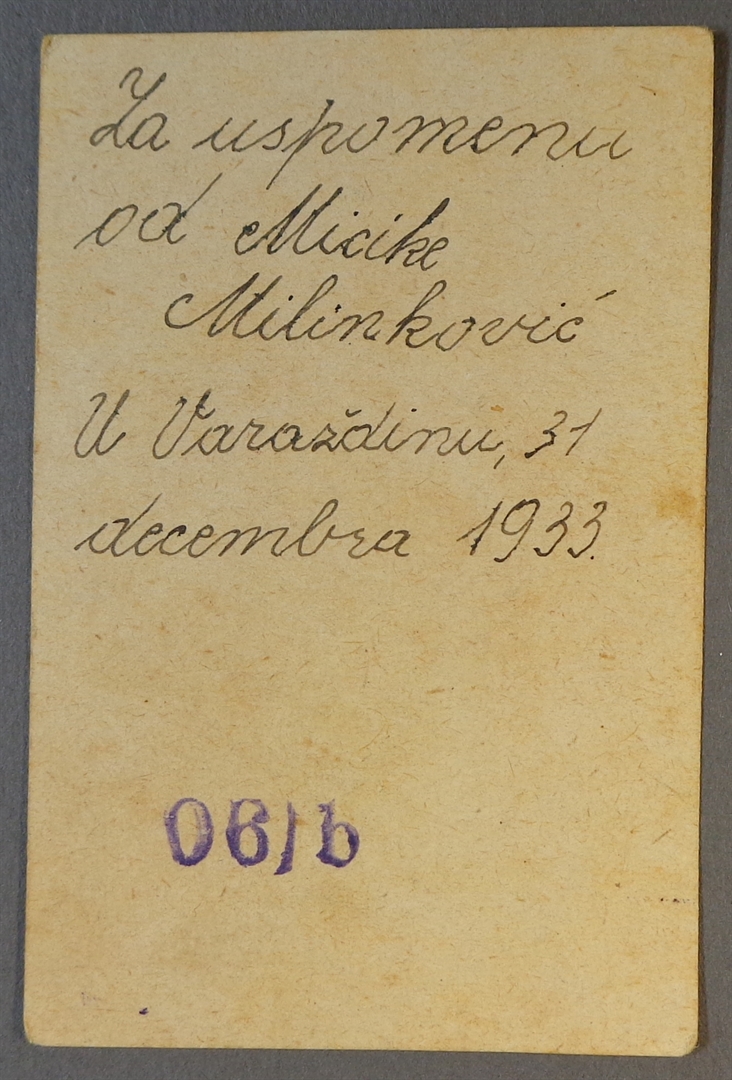 Za uspomenu
od Micike
Milinković
U Varaždinu, 31
decembra 1933.
06/b